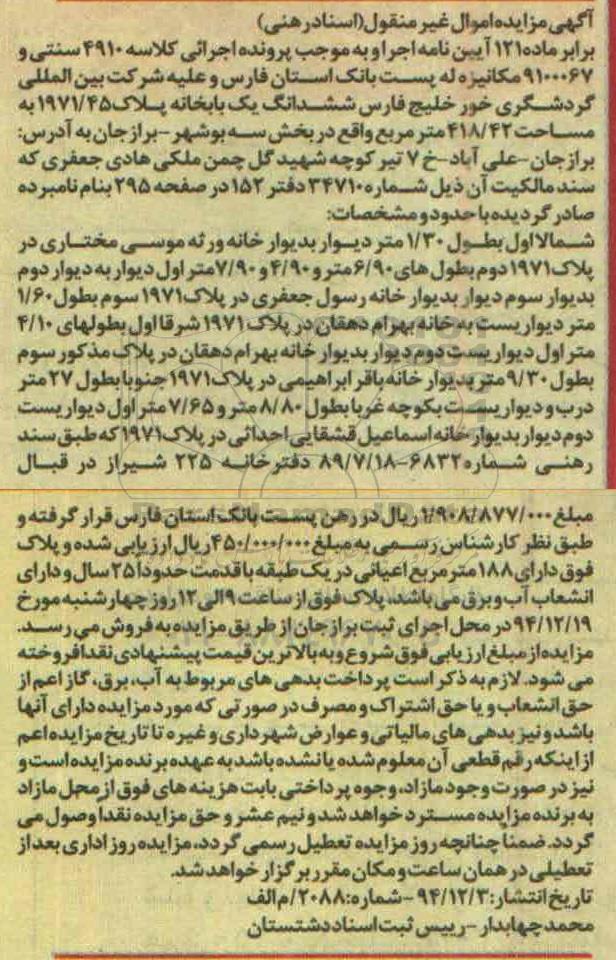 آگهی مزایده اموال غیر منقول(اسناد رهنی)
برابر ماده۱۲۱ آیین نامه اجرا و به موجب پرونده اجرائی کلاسه ۴۹۱۰ سنتی و
۹۱۰۰۰۶۷ مکانیزه له پست بانک استان فارس و علیه شرکت بین المللی
گردشگری خور خلیج فارس ششدانگ یک بابخانه پلاک۱۹۷۱/۴۵ به
مساحت ۴۱۸/۴۲ متر مربع واقع در بخش سه بوشهر -برازجان به آدرس:
برازجان-علی آباد-خ ۷ تیر کوچه شهید گل چمن ملکی هادی جعفری که
سند مالکیت آن ذیل شماره۳۴۷۱۰ دفتر ۱۵۲ در صفحه ۲۹۵ بنام نامبرده
صادر گردیده با حدود و مشخصات:
شمالا اول بطول ۱/۳۰ متر دیوار بدیوار خانه ورثه موسی مختاری در
پلاک ۱۹۷۱ دوم بطول های۶/۹۰ متر و ۴/۹۰ و ۷/۹۰متر اول دیوار به دیوار دوم
بدیوار سوم دیوار بدیوار خانه رسول جعفری در پلاک۱۹۷۱ سوم بطول۱/۶۰
متر دیواریست به خانه بهرام دهقان در پلاک ۱۹۷۱ شرقا اول بطولهای ۴/۱۰
متر اول دیواریست دوم دیوار بدیوار خانه بهرام دهقان در پلاک مذکور سوم
بطول ۹/۳۰ متر بدیوار خانه باقر ابراهیمی در پلاک۱۹۷۱ جنوبا بطول ۲۷ متر
درب و دیواریست بکوچه غربا بطول ۸/۸۰ متر و ۷/۶۵ متر اول دیواریست
دوم دیوار بدیوار خانه اسماعیل قشقایی احداثی در پلاک۱۹۷۱ که طبق سند
رهنی شماره۶۸۳۲-۸۹/۷/۱۸ دفترخانه ۲۲۵ شیراز در قبال
مبلغ ۱/۹۰۸/۸۷۷/۰۰۰ ریال در رهن پست بانک استان فارس قرار گرفته و
طبق نظر کارشناس رسمی به مبلغ ۴۵۰/۰۰۰/۰۰۰ریال ارزیابی شده و پلاک
فوق دارای ۱۸۸ متر مربع اعیانی در یک طبقه با قدمت حدودا ۲۵ سال و دارای
انشعاب آب و برق می باشد، پلاک فوق از ساعت ۹ الی ۱۲ روز چهارشنبه مورخ
۹۴/۱۲/۱۹ در محل اجرای ثبت برازجان از طریق مزایده به فروش می رسد.
مزایده از مبلغ ارزیابی فوق شروع و به بالاترین قیمت پیشنهادی نقدا فروخته
می شود. لازم به ذکر است پرداخت بدهی های مربوط به آب، برق، گاز اعم از
حق انشعاب و یا حق اشتراک و مصرف در صورتی که مورد مزایده دارای آنها
باشد و نیز بدهی های مالیاتی و عوارض شهرداری و غیره تا تاریخ مزایده اعم
از اینکه رقم قطعی آن معلوم شده یا نشده باشد به عهده برنده مزایده است و
نیز در صورت وجود مازاد، وجوه پرداختی بابت هزینه های فوق از محل مازاد
به برنده مزایده مسترد خواهد شد و نیم عشر و حق مزایده نقدا وصول می
گردد. ضمنا چنانچه روز مزایده تعطیل رسمی گردد، مزایده روز اداری بعد از
تعطیلی در همان ساعت و مکان مقرر برگزار خواهد شد.
تاریخ انتشار: ۹۴/۱۲/۳ -شماره:۲۰۸۸/م الف
محمد چهابدار -رییس ثبت اسناد دشتستان